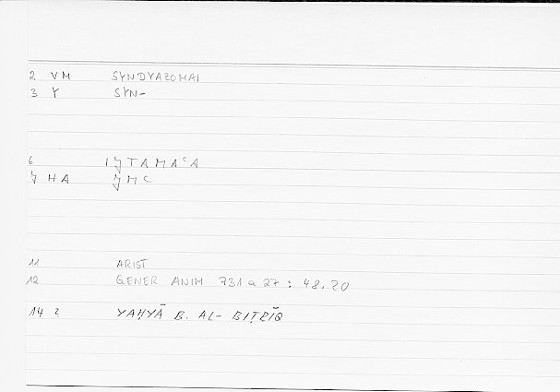 2 VM SYNDYAZOMAI
3 Y SYN-
6 IǦTAMAʿA
Ǧ HA ǦMC
11 ARIST
12 GENER ANIM 731 a 27 : 48,20
14 2 YAḤYĀ B. AL-BIṬRĪQ